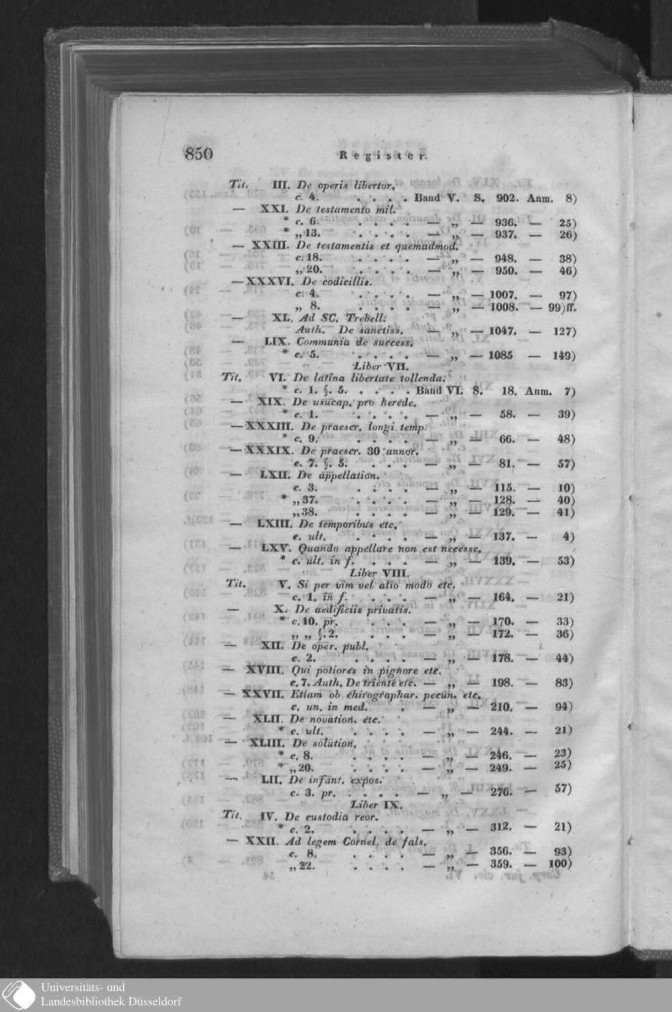 850 Register.
Tit. III. De operis libertor.
c. 4. . . . . Band V. S. 902. Anm. 8)
— XXI. De testamento mil.
* c. 6. . . . . — „ — 936. — 25)
* „ 13. . . . . — „ — 937. — 26)
— XXIII. De testamentis et quemadmod.
c. 18. . . . . — „ — 948. — 38)
„ 20. . . . . — „ — 950. — 46)
— XXXVI. De codicillis.
c. 4. . . . . — „ — 1007. — 97)
„ 8. . . . . — „ — 1008. — 99) ff.
— XL. Ad SC. Trebell.
Auth. De sanctiss. — „ — 1047. — 127)
— LIX. Communia de success.
* c. 5. . . . . — „ — 1085 — 149)
Liber VII.
Tit. VI. De latina libertate tollenda.
* c. 1. §. 5. . . . . Band VI. S. 18. Anm. 7)
— XIX. De usucap. pro herede.
* c. 1. . . . . — „ — 58. — 39)
— XXXIII. De praescr. longi temp.
* c. 9. . . . . — „ — 66. — 48)
— XXXIX. De praescr. 30 annor.
c. 7. §. 5. . . . — „ — 81. — 57)
— LXII. De appellation.
c. 3. . . . . — „ — 115. — 10)
* „ 37. . . . . — „ — 128. — 40)
„ 38. . . . . — „ — 129. — 41)
— LXIII. De temporibus etc.
c. ult. . . . . — „ — 137. — 4)
— LXV. Quando appellare non est necesse.
* c. ult. in f. . . . — „ — 139. — 53)
Liber VIII.
Tit. V. Si per vim vel alio modo etc.
c. 1. in f. . . . — „ — 164. — 21)
— X. De aedificiis privatis.
* c. 10. pr. . . . — „ — 170. — 33)
„ „ §. 2. . . . — „ — 172. — 36)
— XII. De oper. publ.
c. 2. . . . . — „ — 178. — 44)
— XVIII. Qui potiores in pignore etc.
c. 7. Auth. De triente etc. — „ — 198. — 83)
— XXVII. Etiam ob chirographar. pecun. etc.
c. un. in med. . — „ — 210. — 94)
— XLII. De novation. etc.
* c. ult. . . . . — „ — 244. — 21)
— XLIII. De solution.
* c. 8. . . . . — „ — 246. — 23)
* „ 20. . . . . — „ — 249. — 25)
— LII. De infant. expos.
c. 3. pr. . . . . — „ — 276. — 57)
Liber IX.
Tit. IV. De custodia reor.
* c. 2. . . . . — „ — 312. — 21)
— XXII. Ad legem Cornel. de fals.
c. 8. . . . . — „ — 356. — 93)
„ 22. . . . . — „ — 359. — 100)
Universitäts- und
Landesbibliothek Düsseldorf